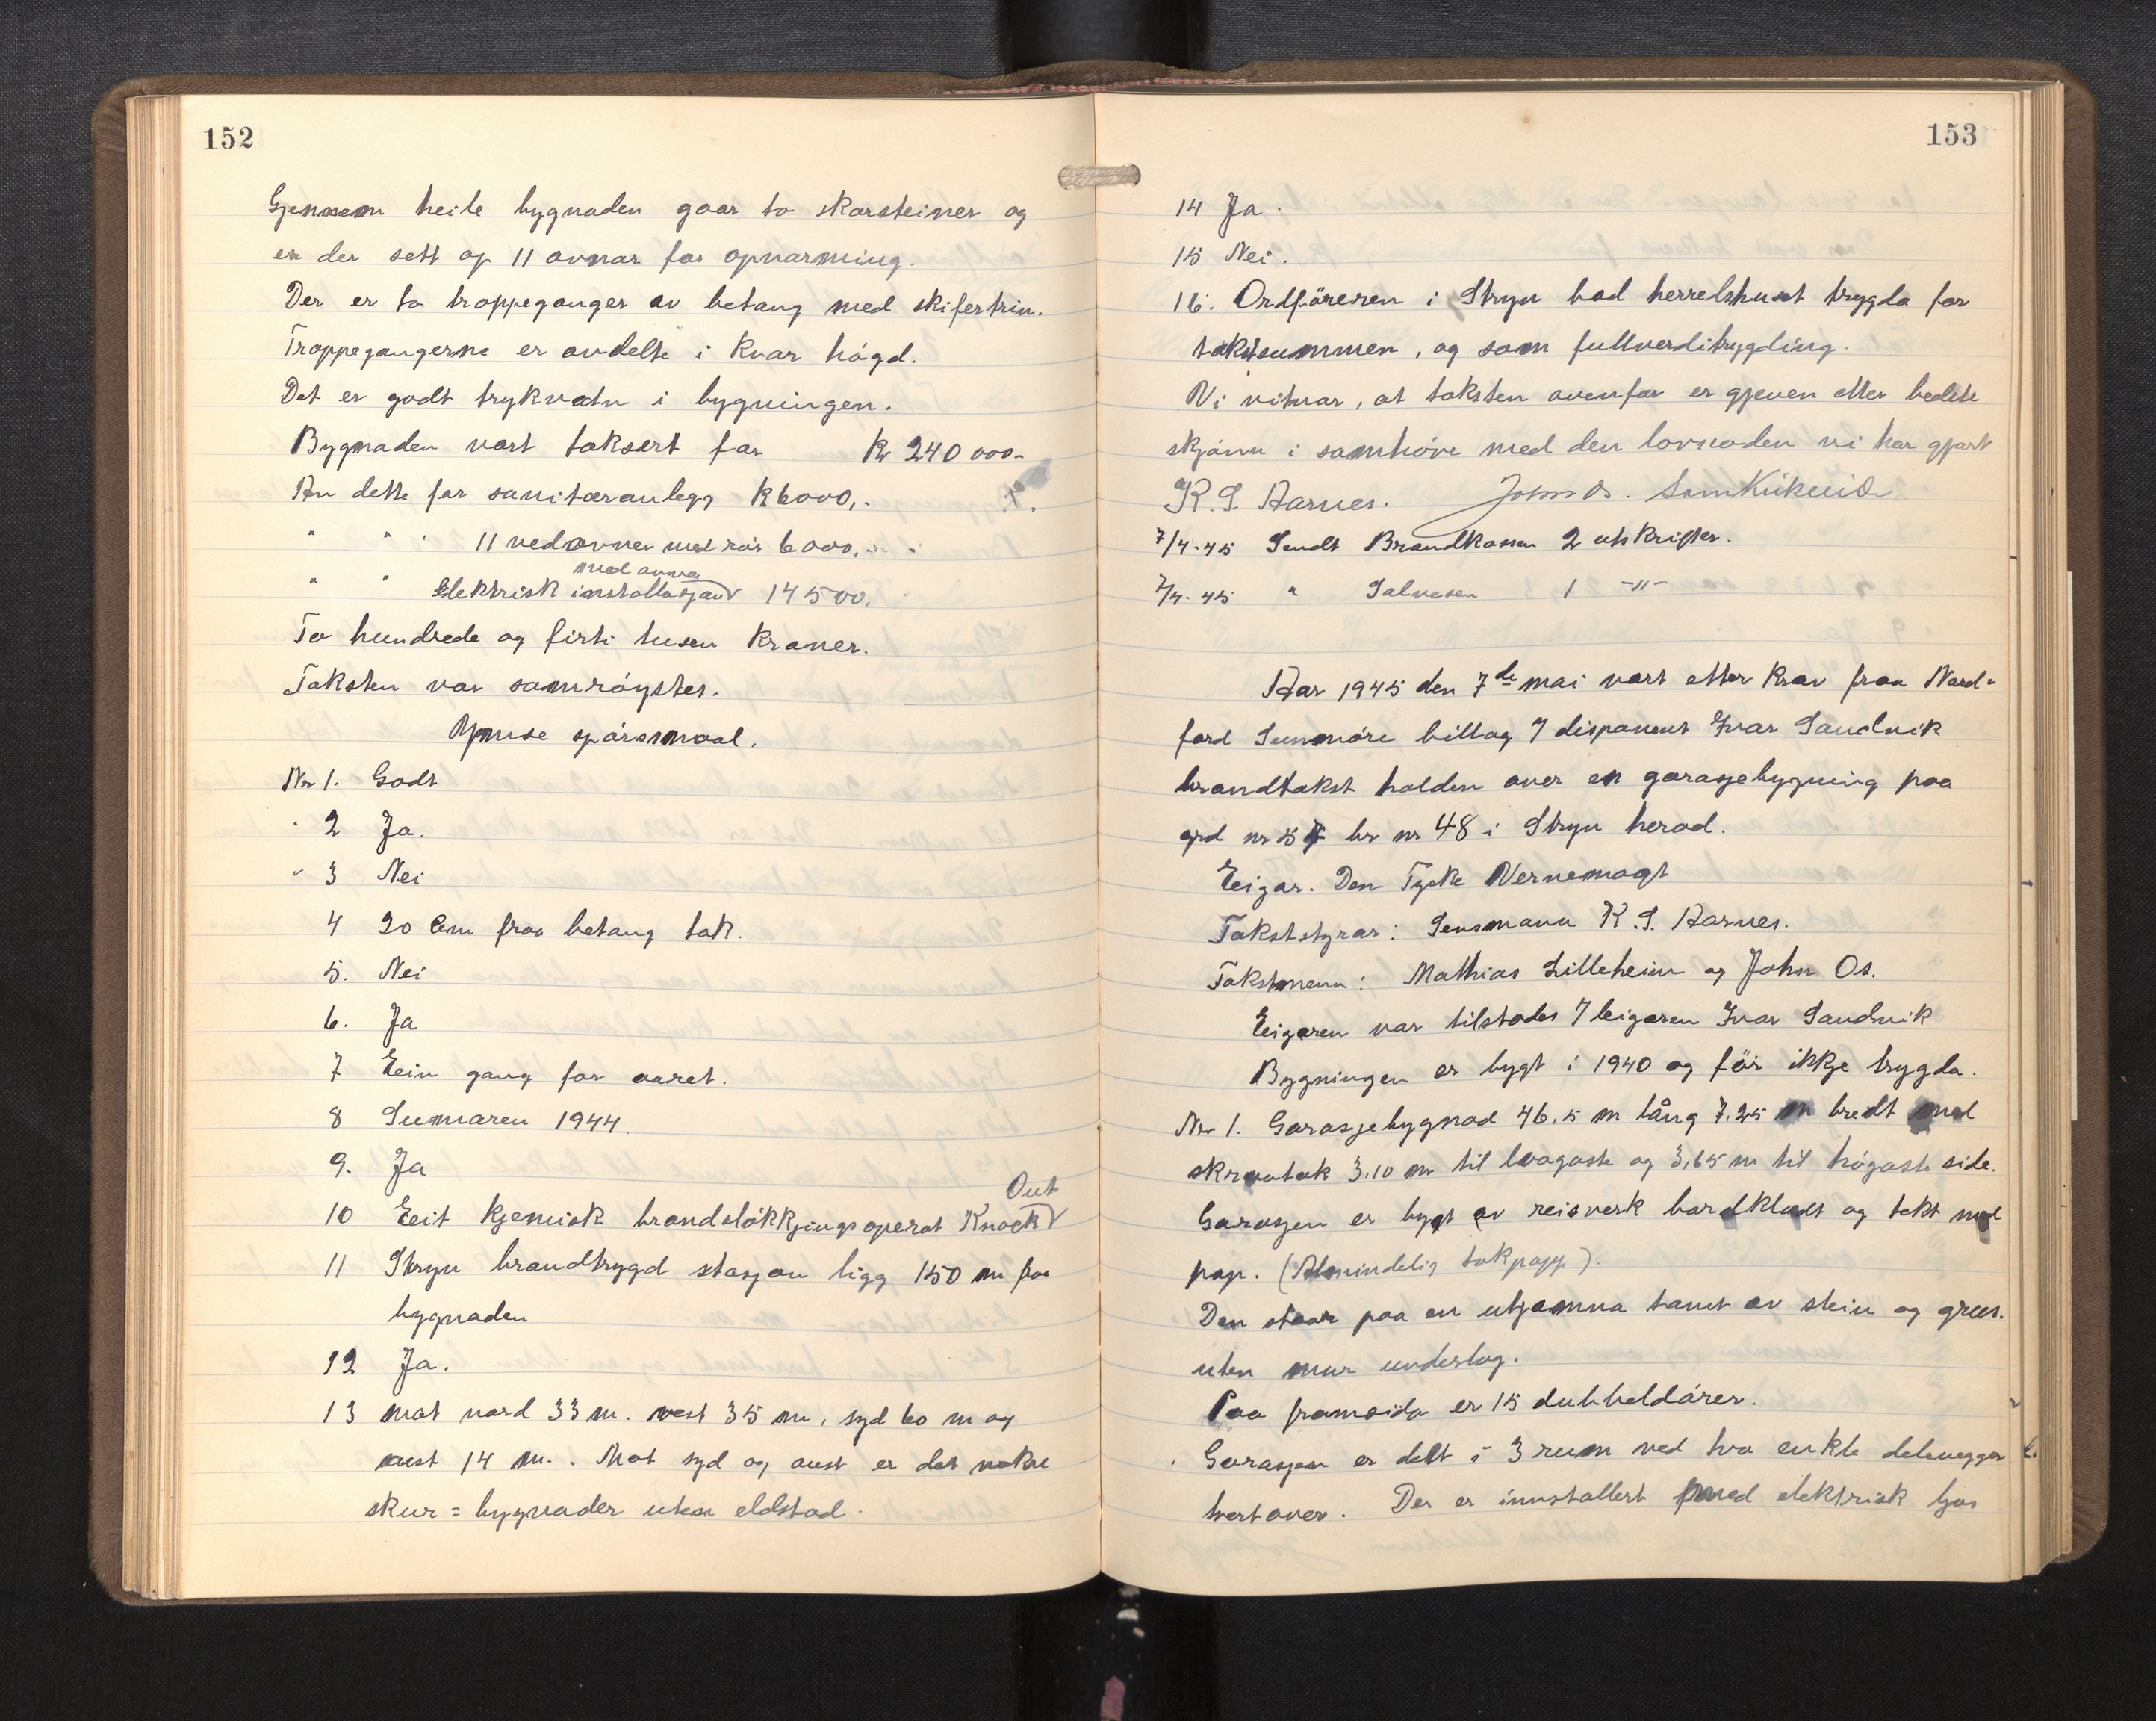 152
Gjennem heile bygnaden gaar to skorsteiner og
er der sett op 11 ovnar for opvarming.
Der er to troppeganger av betong med skifertrin.
Troppegangerne er avdelte i kvar högd.
Det er godt trykvatn i bygningen.
Bygnaden vart taksert for kr 240 000-
Av dette for sanitæranlegg k 6000,-
" " " 11 vedovner med rör 6000,-
med ovna
" " Elektrisk installasjon 14500.
To hundrede og firti tusen kroner.
Taksten var samröystes.
Ymise spörsmaal.
Nr 1. Godt
" 2 Ja.
" 3 Nei
4 20 Cm fraa betong tak.
5. Nei
6. Ja
7 Ein gang for aaret.
8 Summaren 1944.
9. Ja
Out
10 Eeit kjemisk brandslökkjingsaperat Knock
11 Stryn brandtrygd stasjon ligg 150 m fra
bygnaden
12 Ja.
13 mot nord 33 m. vest 35 m, syd 60 m og
aust 14 m.. Mot syd og aust er det nokre
skur = bygnader uten eldstad.
153
14 Ja.
15 Nei.
16. Ordföreren i Stryn bad herredshuset trygda for
takstsummen, og som fullverditrygding.
Vi vitnar, at taksten ovenfor er gjeven etter beste
skjönn i samhöve med den lovnaden vi har gjort
K. S. Aarnes. John Os.
7/4-45 Sendt Brandkassen 2 utskrifter.
7/4-45 " Salvesen 1 -"-
Aar 1945 den 7de mai vart etter krav fraa Nord-
fjord Sunmöre billag 7 disponent Ivar Sandvik
brandtakst halden over en garasjebygning paa
grd nr 57 br nr 48 i Stryn herad.
Eigar. Den Tyske Vernemagt
Takststyrar: Lensmann K. S. Aarnes.
Takstmenn: Mathias Lilleheim og John Os.
Eigaren var tilstades 7 leigaren Ivar Sandvik
Bygningen er bygt i 1940 og för ikkje trygda.
Nr 1. Garasjebygnad 46,5 m lång 7.25 m bredt med
skraatak 3.10 m til laagaste og 3,65 m til högaste side.
Garasjen er bygt av reisverk bordkledt og tekt med
pap. (Almindelig takpapp).
Den staar paa en utjamna tomt av stein og grus.
uten mur underlag.
Paa framsida er 15 dubbeldörer.
Garasjen er delt i 3 rum ved tvo enkle delevegger
tvert over. Der er innstallert med elektrisk ljos